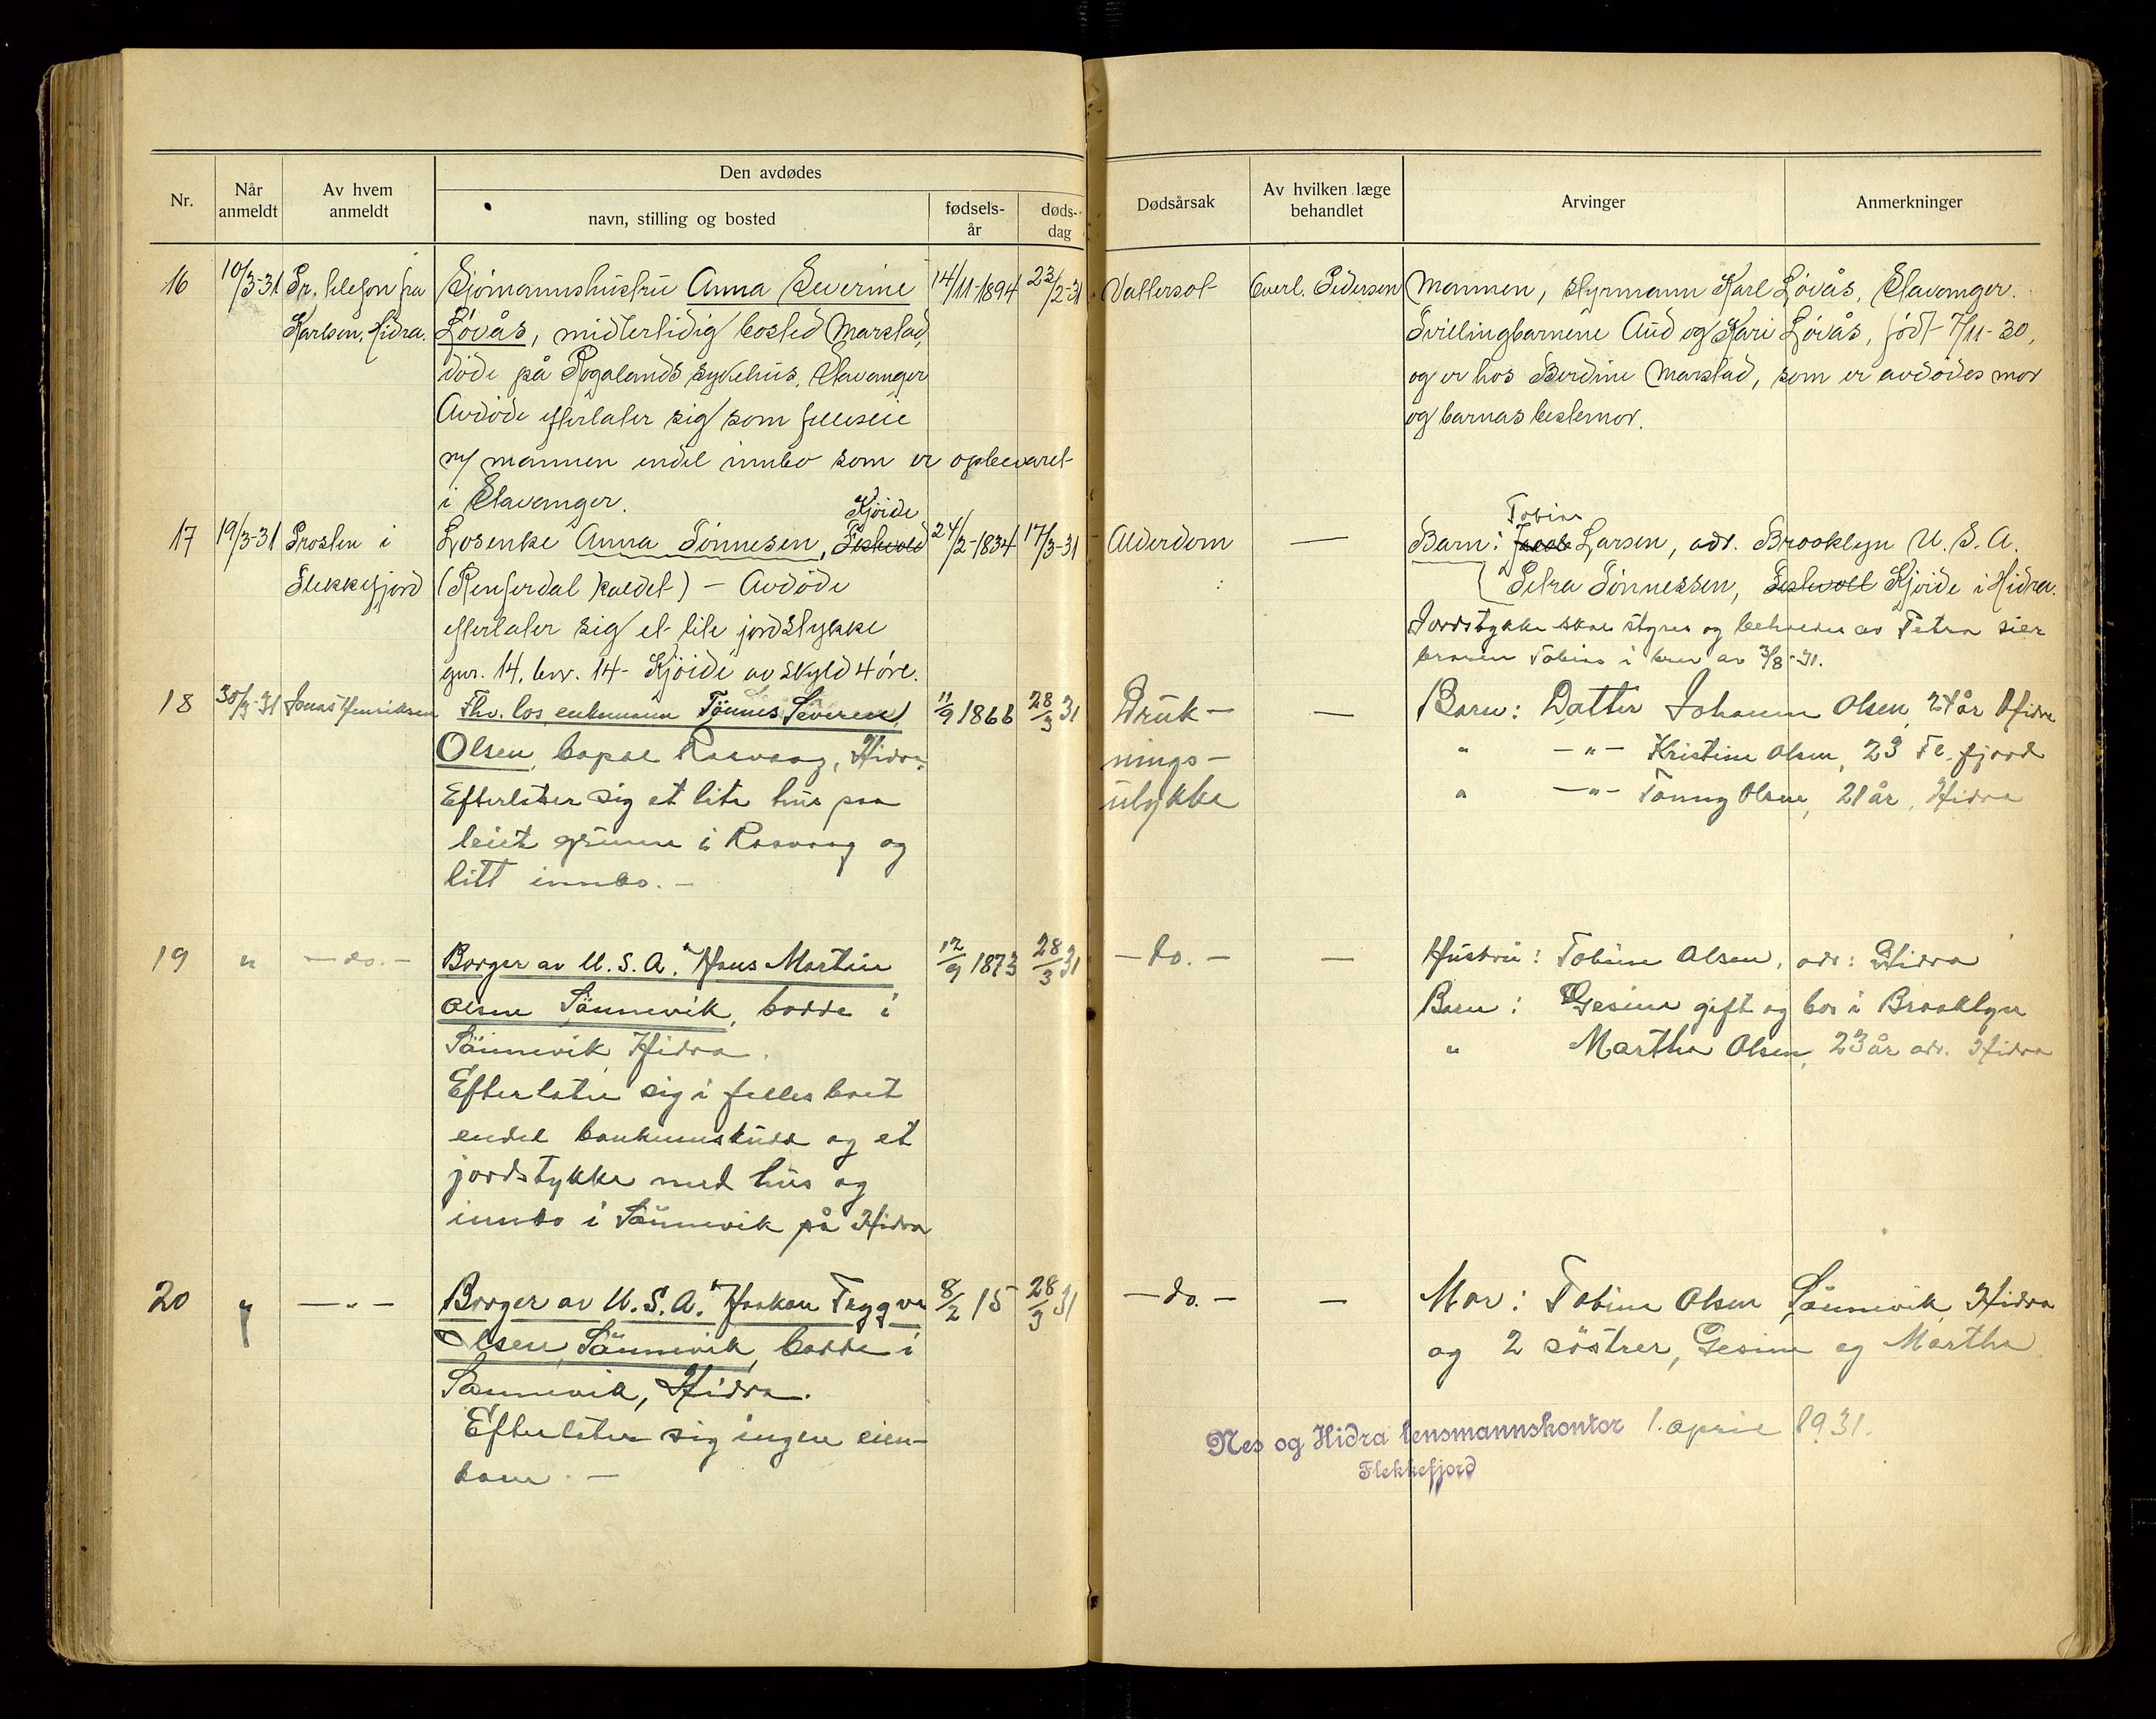 Nr.
Når anmeldt
Av hvem anmeldt
Den avdødes
navn, stilling og bosted
fødsels-år
døds-dag
Dødsårsak
Av hvilken læge behandlet
Arvinger
Anmerkninger
16
10/3-31
Pr. telefon fra
Karlsen, Hidra.
Sjømannshustru Anna Severine
Løvås, midlertidig bosted Marstad,
døde på Rogalands sykehus, Stavanger
Avdøde efterlater sig som felleseie
m/ mannen endel innbo som er opbevaret
i Stavanger.
14/11-1894
23/2-31
Vattersot
Overl. Pedersen
Mannen, styrmann Karl Løvås, Stavanger.
Tvillingbarnene Aud og Kari Løvås, født 7/11-30,
og er hos Berdine Marstad, som er avdødes mor
og barnas bestemor.
17
19/3-31
Prosten i
Flekkefjord
Kjøide
Losenke Anna Tønnesen,
(Renferdal kaldet) – Avdøde
efterlater sig et lite jordstykke
gnr. 14, bnr. 14 - Kjøide av skyld 4 øre.
24/2-1834
17/3-31
Alderdom
—
Tobias
Barn: Larsen, adr. Brooklyn U.S.A.
Petra Tønnessen, Kjøide i Hidra.
Jordstykke skal styres og beholdes av Petra sier
broren Tobias i brev av 3/8-31.
18
30/3-31
Jonas Henriksen
Fhv. los enkemann Tønnes Severin
Olsen, bopæl Rasvaag, Hidra.
Efterlater sig et lite hus paa
leiet grunn i Rasvaag og
litt innbo. –
11/9 1866
28/3 31
Druk-
nings-
ulykke
—
Barn: Datter Johanne Olsen, 24 år Hidra
" —"— Kristine Olsen, 23 Fl.fjord
" —"— Tønny Olsen, 21 år, Hidra
19
"
— do. —
Borger av U.S.A. "Hans Martin
Olsen Sännevik, bodde i
Sännevik Hidra.
Efterlater sig i felles boet
endel bankinnskudd og et
jordstykke med hus og
innbo i Sännevik på Hidra
12/9 1873
28/3 31
— do. —
—
Hustru: Tobine Olsen, adr: Hidra
Barn: Gesine gift og bor i Brooklyn
" Martha Olsen, 23 år adr. Hidra
20
"
— " —
Borger av U.S.A. "Haakon Trygve
Olsen, Sännevik, bodde i
Sännevik, Hidra.
Efterlater sig ingen eien-
dom. —
8/2 15
28/3 31
— do. —
—
Mor: Tobine Olsen Sännevik, Hidra
og 2 søstrer, Gesine og Martha.
Nes og Hidra lensmannskontor 1. april 1931.
Flekkefjord